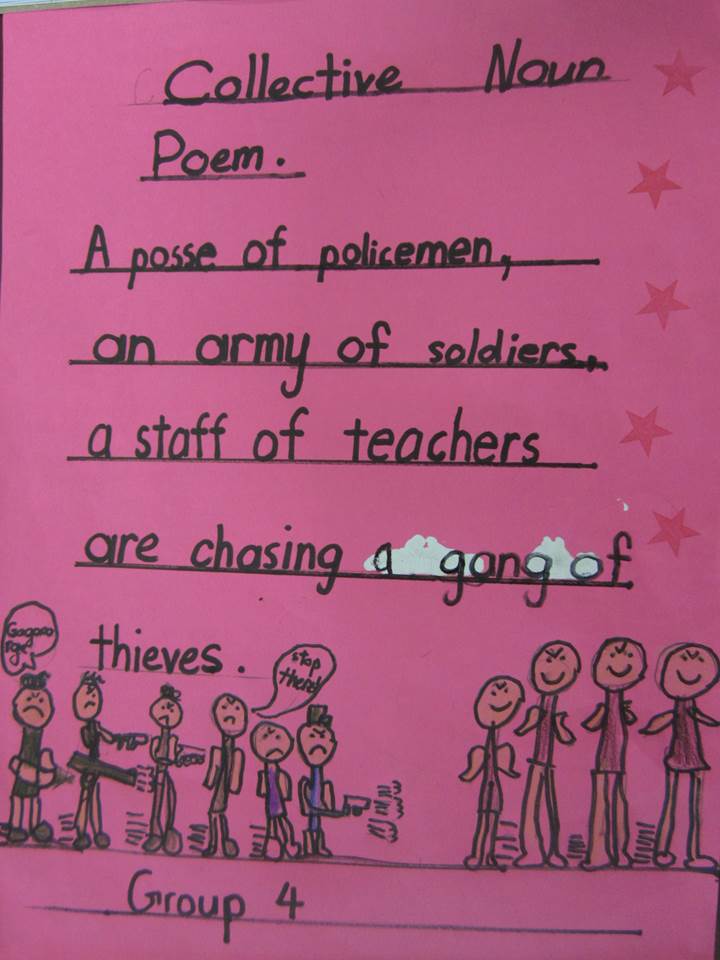 Collective Noun
Poem.
A posse of policemen,
an army of soldiers,
a staff of teachers
are chasing a gang of
thieves.
stop
there!
Group 4